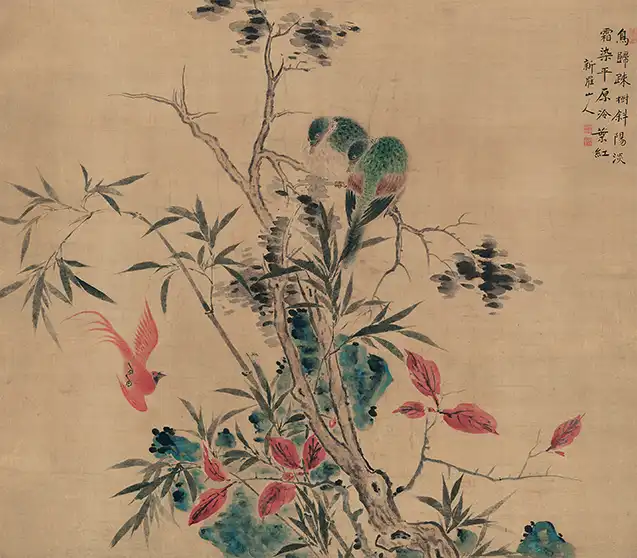 鳥歸疎樹斜陽淡
霜染平原冷葉紅
新羅山人